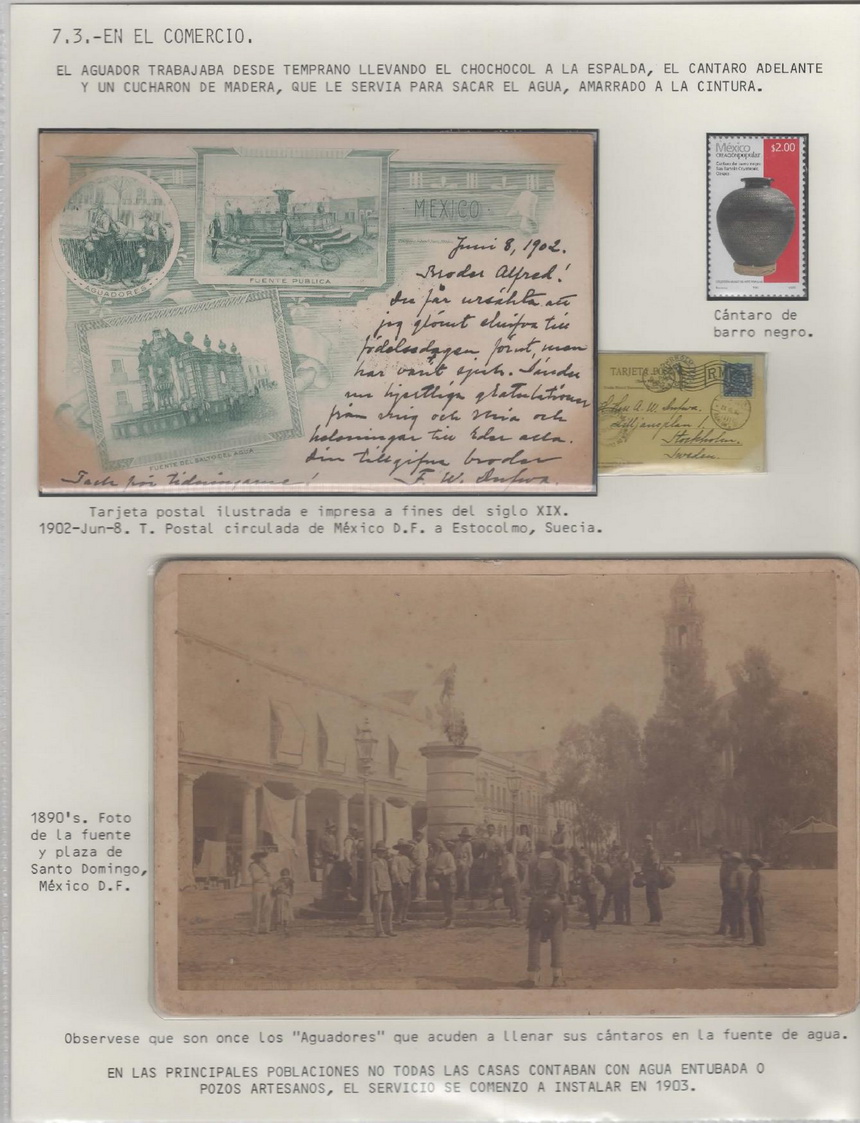 7.3.-EN EL COMERCIO.
EL AGUADOR TRABAJABA DESDE TEMPRANO LLEVANDO EL CHOCHOCOL A LA ESPALDA, EL CANTARO ADELANTE
Y UN CUCHARON DE MADERA, QUE LE SERVIA PARA SACAR EL AGUA, AMARRADO A LA CINTURA.
AGUADORES
FUENTE PUBLICA
MEXICO
FUENTE DEL SALTO DEL AGUA
Juni 8, 1902.
Broder Alfred!
Du får ursäkta att
jag glömt skrifva till
födelsedagen förut, men
har varit
från mig och Mia och
helsningar till Eder alla.
Din tillgifna broder
F. W.
Tack för tidningarne!
México
creaciónpopular
$2.00
Cántaro de
barro negro.
TARJETA
A. W.
Lilljansplan 1
Stockholm.
Sweden.
Tarjeta postal ilustrada e impresa a fines del siglo XIX.
1902-Jun-8. T. Postal circulada de México D.F. a Estocolmo, Suecia.
1890's. Foto
de la fuente
y plaza de
Santo Domingo,
México D.F.
Observese que son once los "Aguadores" que acuden a llenar sus cántaros en la fuente de agua.
EN LAS PRINCIPALES POBLACIONES NO TODAS LAS CASAS CONTABAN CON AGUA ENTUBADA O
POZOS ARTESANOS, EL SERVICIO SE COMENZO A INSTALAR EN 1903.